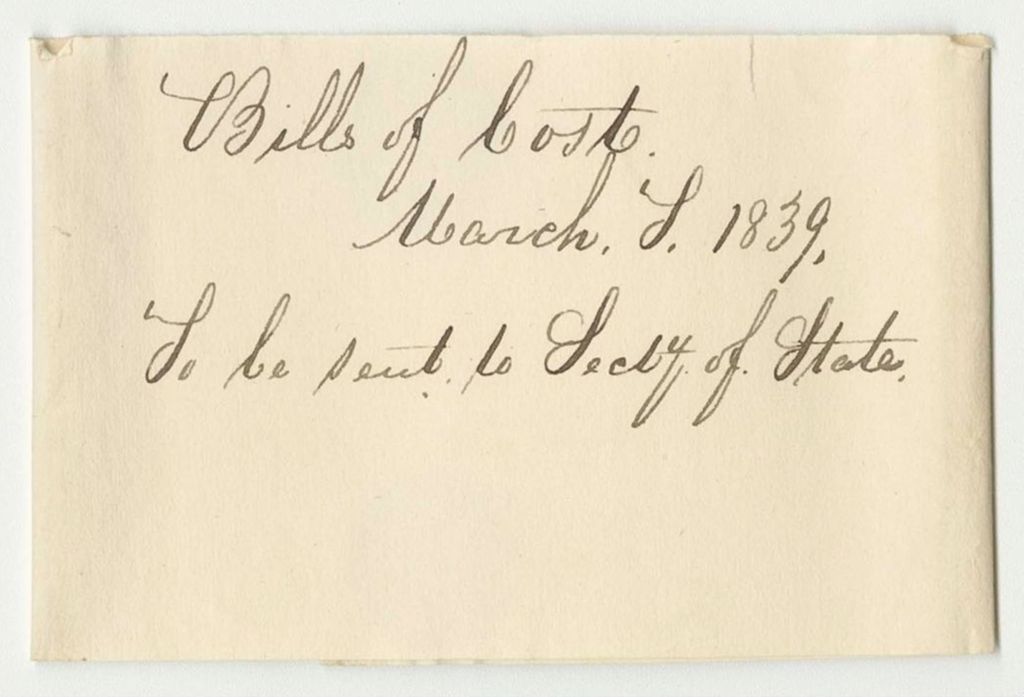 Bills of Cost.
March. T. 1839.
To be sent. to Secty. of. State.